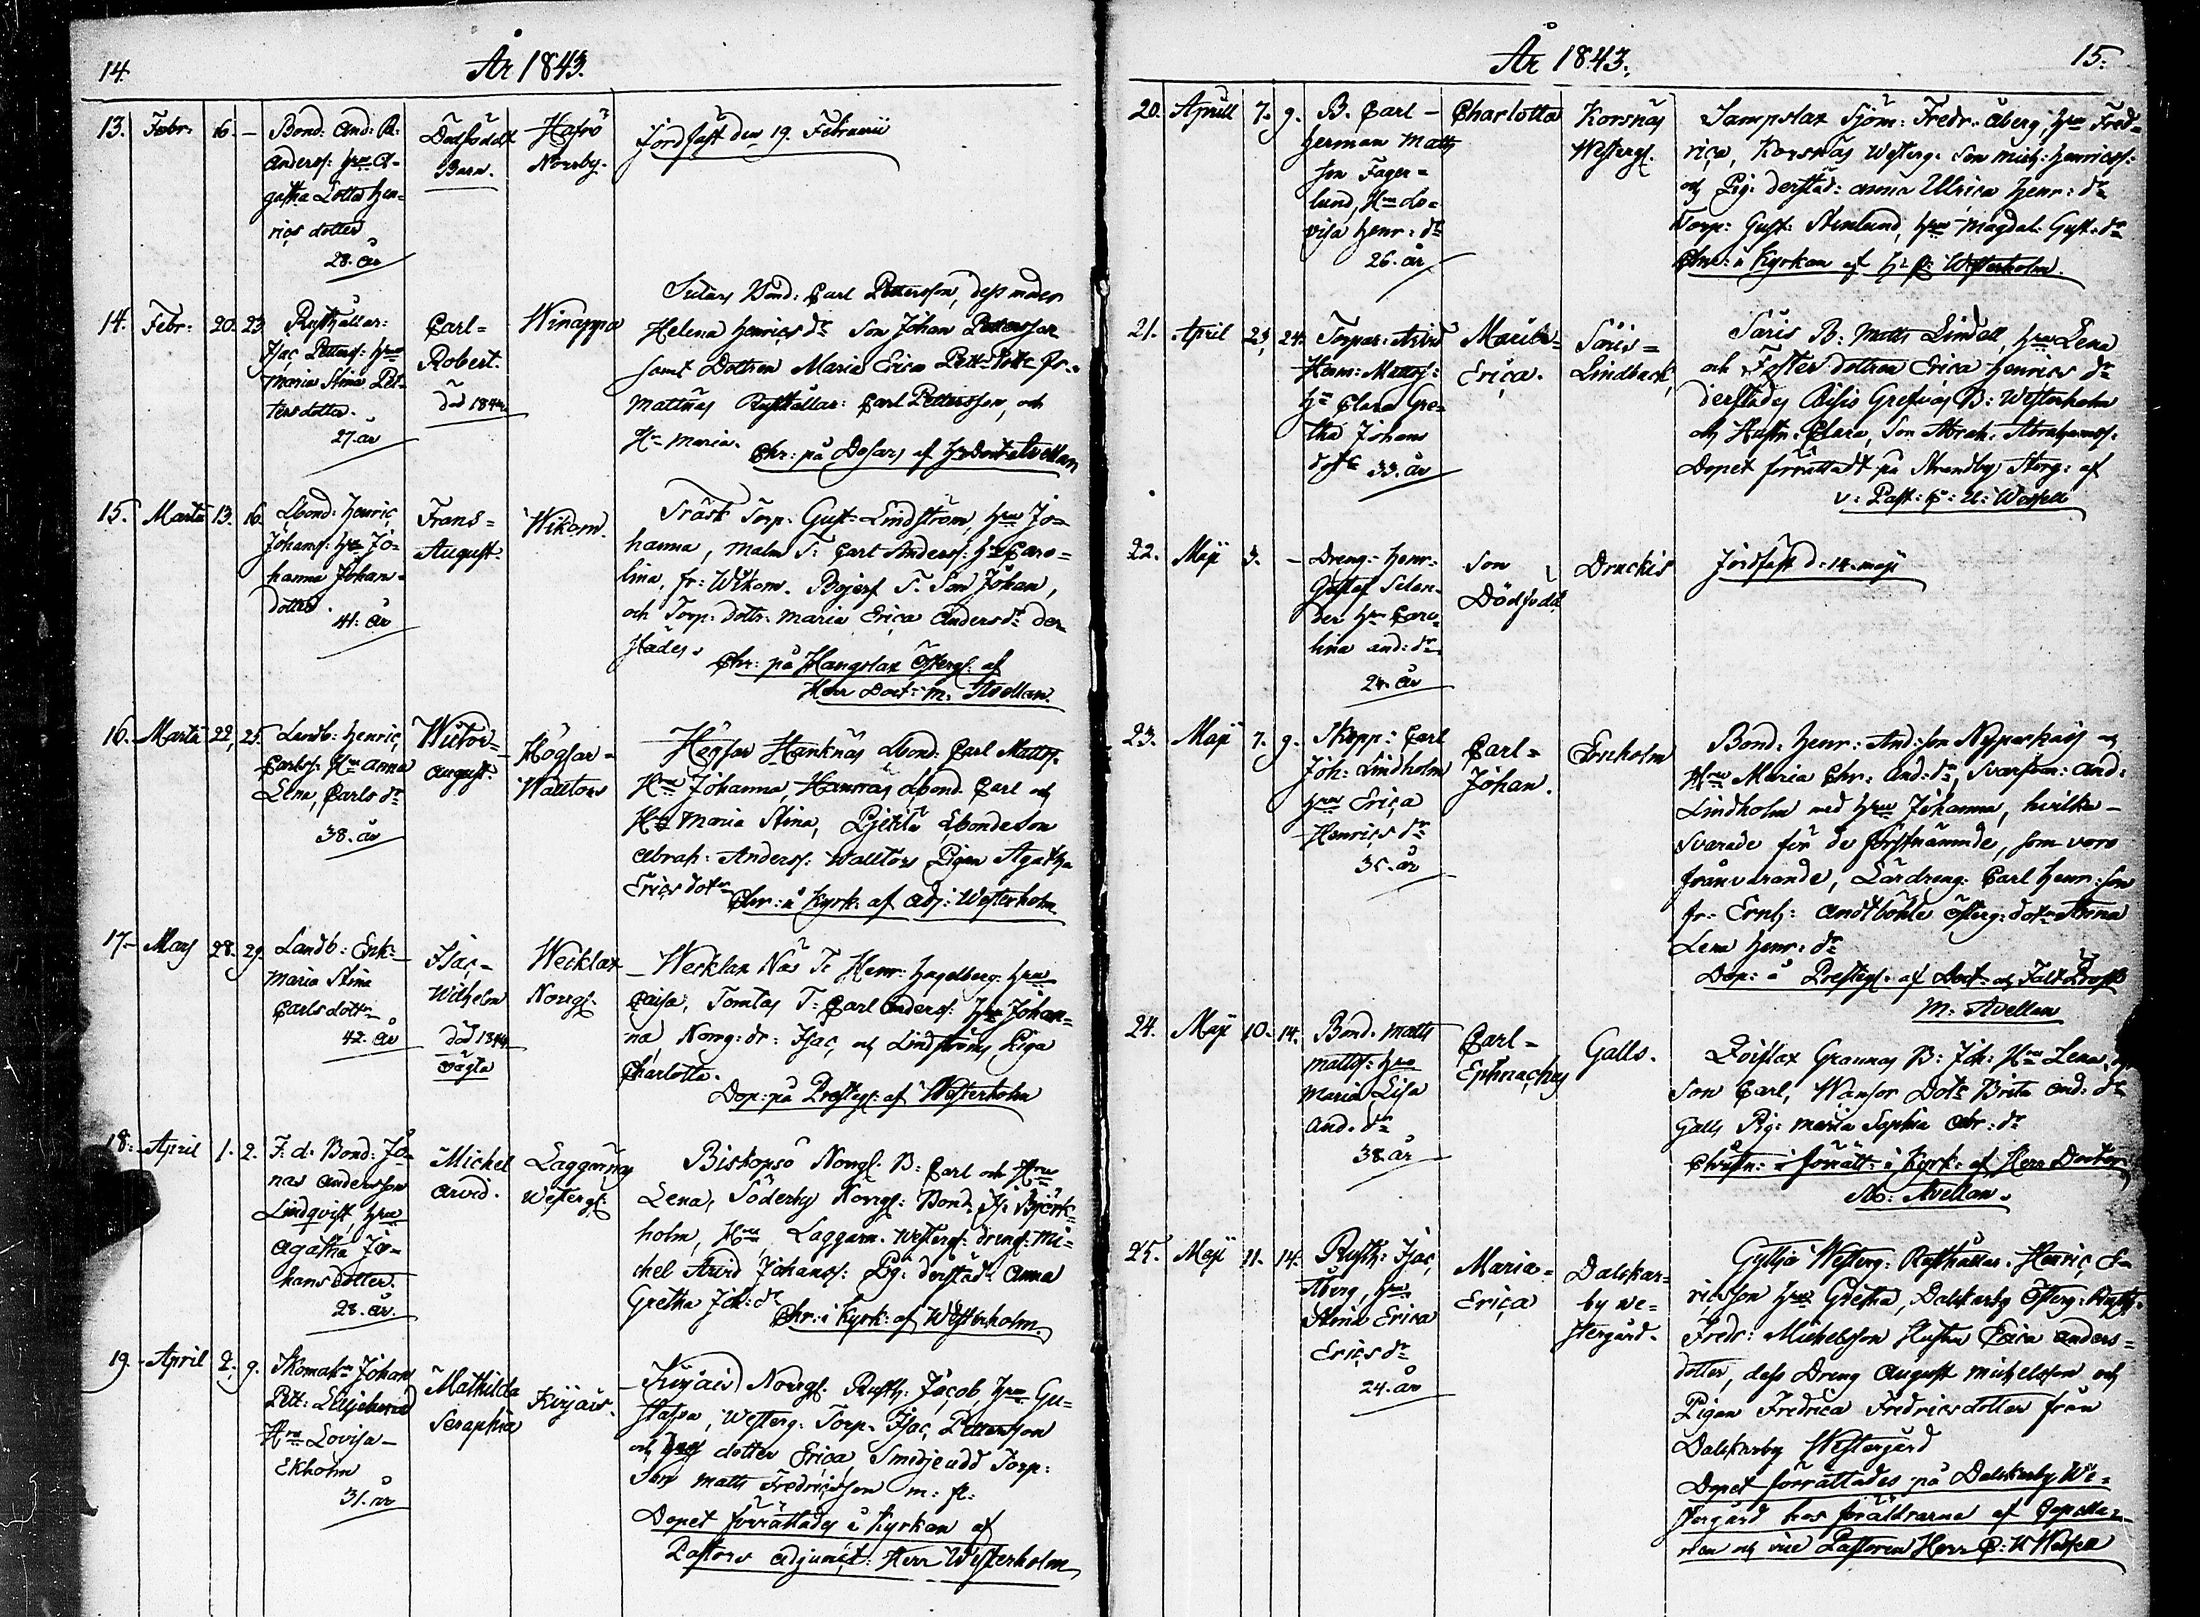 14.
År 1843.
13. Febr. 16. —
Bond: And: R:
Anderss: Hru A-
gatha Lotta Hen-
rics dotter
28. år
Dödfödt
Barn.
Hafrö
Norrby.
Jordfäst den 19. Februarii
14. Febr. 20. 23.
Rusthållar:
Isac Petterss: Hru
Maria Stina Pet-
tersdotter.
27. år
Carl-
Robert.
död 1844
Winappa
Bond: Carl Pettersson, dess moder
Helena Henrics dr Son Johan Pettersson
samt Dottren Maria Erica
Mattnäs Rusthållar: Carl Pettersson, och
H- Maria.
Chr: på af Avellan
15. Martii 13. 16.
Lbond: Henric
Johanss: Hru Jo-
hanna Johans-
dotter.
41. år
Frans-
August.
Wikom.
Träsk Torp: Gust: Lindström, Hru Jo-
hanna, Malm T: Carl Anderss: Hru Caro-
lina, fr: Wikom. T: Son Johan,
och Torp: dottr: Maria Erica Anders dr der-
städes.
Chr: på Hangslax Östergl: af
Herr Doct: M. Avellan.
16. Martii 22. 25.
Landb: Henric
Carlss: Hru Anna
Lena, Carls dr
38. år
Wictor-
August.
Högsar-
Walltors
Högsar Hanknäs Lbond: Carl Mattss.
Hru Johanna, Lbond. Carl och
Hru Maria Stina, Lbondeson
Abrah: Anderss. Walltors Pigan Agatha
Erics dotr
Chr: i Kyrk: af Adj: Westerholm
17. Mars 28. 29.
Landb: Enk:
Maria Stina
Carls dottr
42. år
Isac-
Wilhelm
död 1844
oägta
Wecklax
Norrg:
Wecklax Näs T: Henr: Hagelberg: Hru
Caisa, Tomtas T: Carl Anderss: Hru Johan-
na Norrg: dr: Isac, och Lindströms Piga
Charlotta.
Dop: på Prestg: af Westerholm
18. April 1. 2.
F. d. Bond: Jo-
nas Andersson
Lindqvist, Hru
Agatha Jo-
hans dotter.
28. år.
Michel
Arvid.
Laggarnäs
Westergl.
Biskopsö Norrgl. B: Carl och Hru
Lena, Söderby Norrgl: Bond: Is: Björk-
holm, Hru Laggarn. Westergl: dreng: Mi-
chel Arvid Johanss: Pig: derstäd: Anna
Gretha Joh: dr
Chr: i Kyrk: af Westerholm.
19. April 2. 9.
Skomakr Johan
Pett: Liljelund
Hru Lovisa
Ekholm
31. år
Mathilda
Seraphia
Kirjais.
Kirjais Norrgl. Rusth: Jacob, Hru Gu-
stafva, Westerg: Torp: Isac Pettersson
och dotter Erica, Smidjeudd Torp:
Son Matts Fredricsson m: fl:
Dopet förrättades i Kyrkan af
Pastors Adjunct: Herr Westerholm
År 1843.
15.
20. Aprill 7. 9.
B. Carl-
Herman Matts
son Fager-
lund, Hru Lo-
visa Henr: dr
26. år
Charlotta
Korsnäs
Westergl.
Sampslax Sjöm: Fredr: Åberg, Hru Fred-
rica, Korsnäs Westerg: Son Mich: Henricss:
och Pig: derstäd: Anna Ulrica Henr: dr
Torp: Gust: Stenlund, Hru Magdal: Gust: dr
Chr: i Kyrkan af Westerholm.
21. April 23. 24.
Torpar: Arvid
Herm: Mattss:
H- Clara Gre-
tha Johans
dott 33. år
Maria-
Erica.
Söris-
Lindbäck
Söris B: Matts Lindell, Hru Lena
och Fosterdottren Erica Henrics dr
derstädes B: Westerholm
och Hustr: Clara, Son Abrah: Abrahamss:
Dopet förrättadt på Strandby Storg: af
v: Past: C: U: Wessell
22. Maji 3. —
Dreng: Henr:
Gustaf Selan-
der Hru Caro-
lina And: dr
24. år
Son
Dödfödd
Druckis
Jordfäst d. 14. Maji
23. Maji 7. 9.
Skepp: Carl
Joh: Lindholm
Hru Erica
Henrics dr
35. år
Carl-
Johan.
Lenholm
Bond: Henr: And:son och
Hru Maria Chr: And: dr, Svarfvar: And:
Lindholm med Hru Johanna, hvilka-
svarade för de förstnämnde, som voro
frånvarande, Lärdreng: Carl Henr: son
fr: Andtböhle Österg: dotr Anna
Lena Henr: dr
Dop: å Prestg: af Doct: och
M. Avellan
24. Maji 10. 14.
Bond: Matts
Mattss: Hru
Maria Lisa
And. dr
38. år
Carl-
Galls.
Grannas B: Joh: Hru Lena,
Son Carl, Wansor Dotr Brita And: dr
Galls Pig: Maria Sophia Abr: dr
Christn: förrätt: i Kyrk: af Herr Doctor
M: Avellan.
25. Maji 11. 14.
Rusth: Isac
Åberg, Hru
Stina Erica
Erics dr
24. år
Maria-
Erica
Dalskar-
by We-
stergård.
Gyltjo Westerg: Rusthållar. Henric E-
ricsson Hru Gretha, Dalskarby Österg: Rusth:
Fredr: Michelsson Hustru Erica Anders-
dotter, dess Dreng August Michelsson och
Pigan Fredrica Fredricsdotter från
Dalskarby Westergård
Dopet förrättades på Dalskarby We-
stergård hos föräldrarna af Capella-
nen och vice Pastoren Herr C: U Wessell